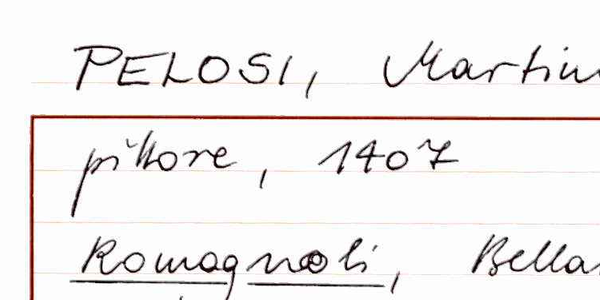 PELOSI, Martin
pittore, 1407
Romagnoli, Bella